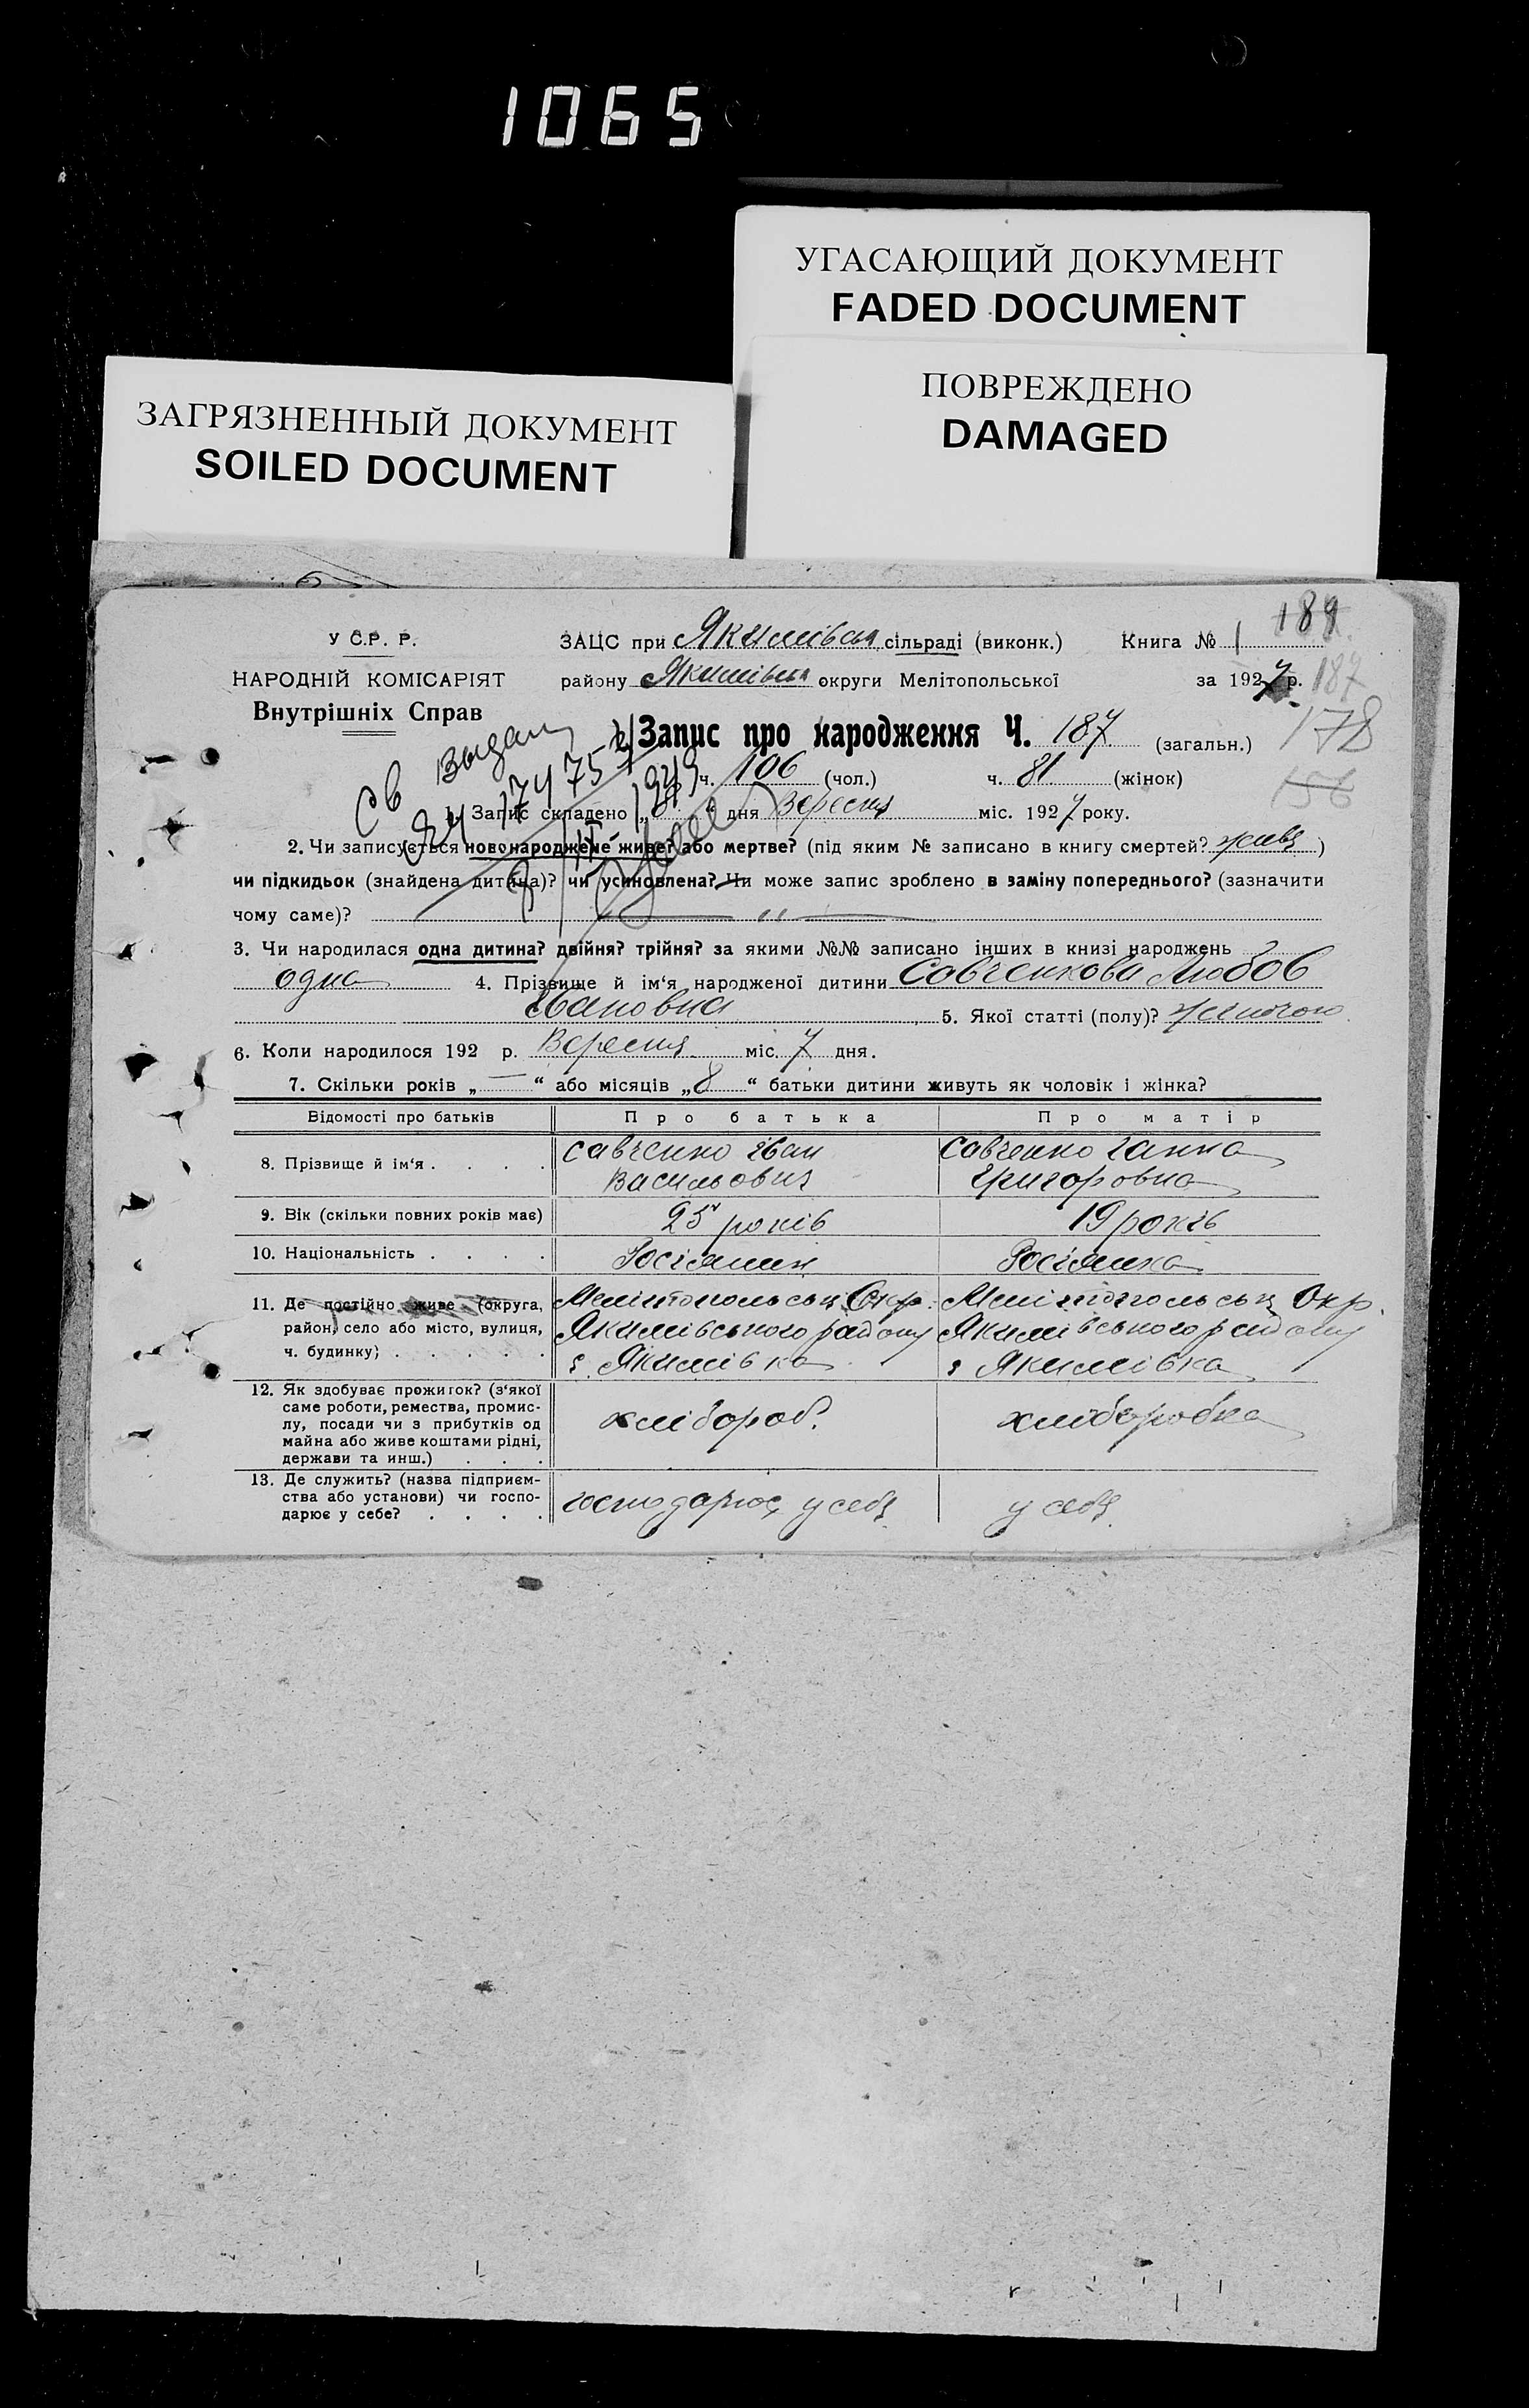 1065
УГАСАЮЩИЙ ДОКУМЕНТ
FADED DOCUMENT
ПОВРЕЖДЕНО
DAMAGED
ЗАГРЯЗНЕННЫЙ ДОКУМЕНТ
SOILED DOCUMENT
189
У С.Р. Р.
ЗАЦС при Якимівськ сільраді (виконк.) Книга № 1
НАРОДНІЙ КОМІСАРІЯТ
району Якимівськ округи Мелітопольської за 1927 р. 187
Внутрішніх Справ
Запис про народження Ч. 187 (загальн.) 178
Св выдан
ч. 106 (чол.) ч. 81 (жінок) 156
1949
1. Запис складено „8“ дня Вересня міс. 1927 року.
2. Чи записується новонароджене живе? або мертве? (під яким № записано в книгу смертей? живе)
чи підкидьок (знайдена дитина)? чи усиновлена? Чи може запис зроблено в заміну попереднього? (зазначити
чому саме)? — „ —
3. Чи народилася одна дитина? двійня? трійня? за якими №№ записано інших в книзі народжень
одна 4. Прізвище й ім‘я народженої дитини Савченкова Любов
Івановна 5. Якої статті (полу)? жіночою
6. Коли народилося 192 р. Вересня міс. 7 дня.
7. Скільки років „—“ або місяців „8“ батьки дитини живуть як чоловік і жінка?
Відомості про батьків Про батька Про матір
8. Прізвище й ім‘я . . . . Савченко Іван Савченко Ганна
Васильович Григоровна
9. Вік (скільки повних років має) 25 років 19 років
10. Національність . . . . Росіянин Росіянка
11. Де постійно живе (округа, Мелітопольськ Окр. Мелітопольськ Окр.
район, село або місто, вулиця, Якимівського району Якимівського району
ч. будинку) . . . . . с. Якимівка с Якимівка
12. Як здобуває прожиток? (з‘якої
саме роботи, ремества, промис-
лу, посади чи з прибутків од хлібороб. хліборобка
майна або живе коштами рідні,
держави та инш.) . . .
13. Де служить? (назва підприєм-
ства або установи) чи госпо- господарює у себя у себя
дарює у себе? . . . .